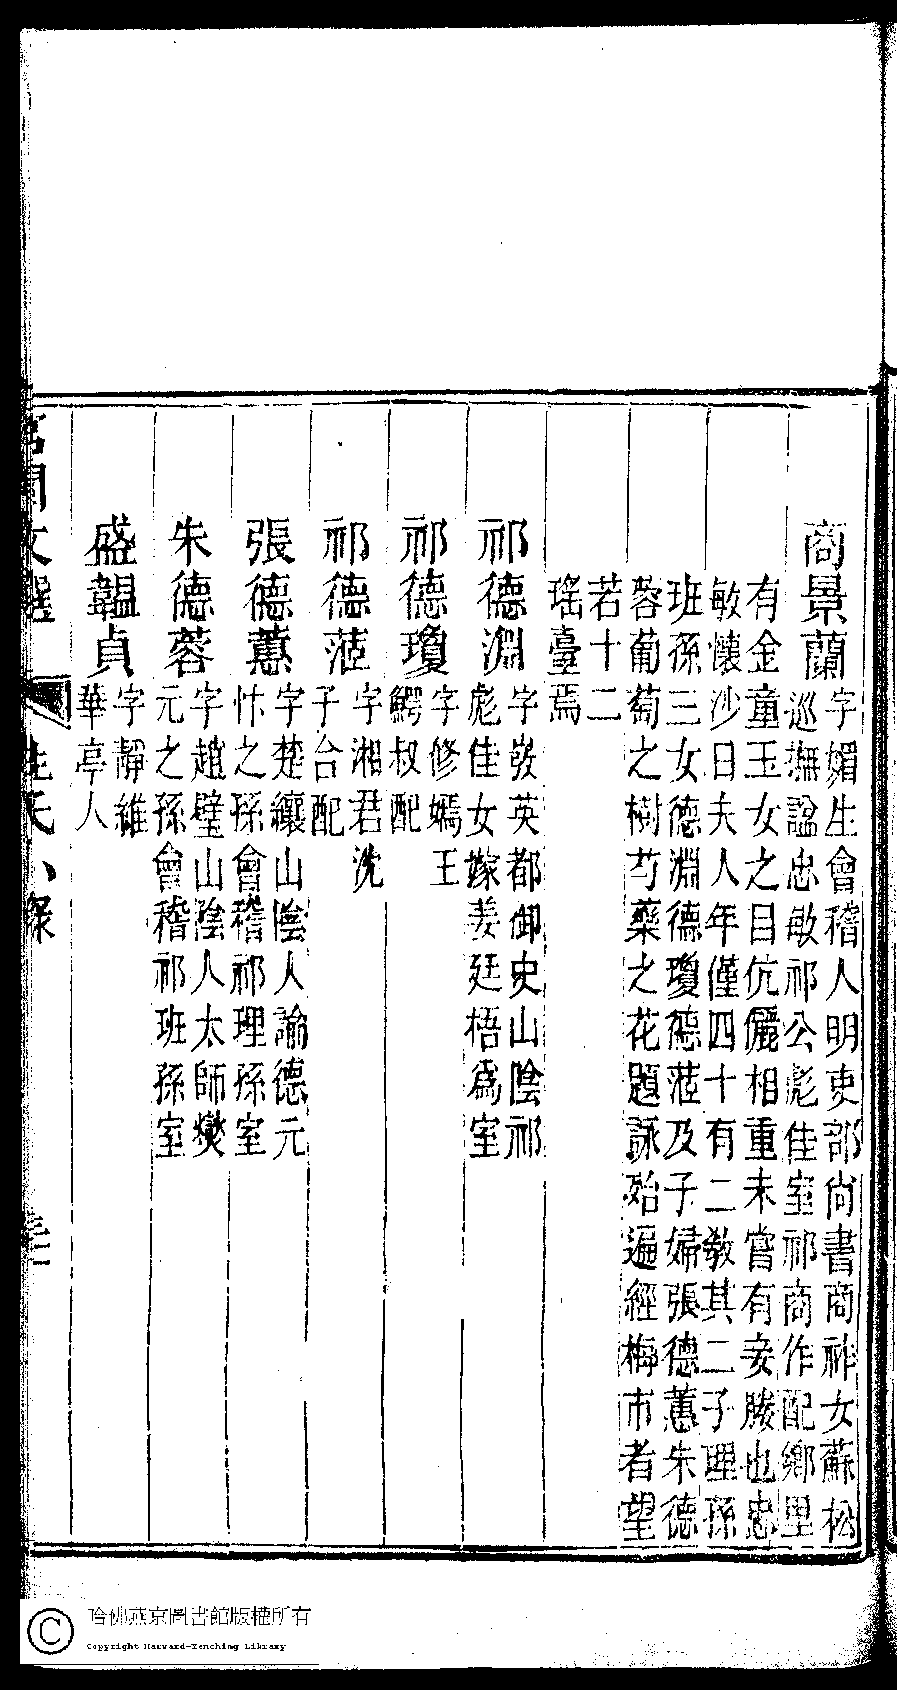 商景蘭
字媚生會稽人明吏部尚書商祚女蘇松
巡撫諡忠敏祁公彪佳室祁商作配鄉里
有金童玉女之目伉儷相重未嘗有妾媵也忠
敏懷沙日夫人年僅四十有二教其二子理孫
班孫三女德淵德瓊德茝及子婦張德蕙朱德
蓉葡萄之樹芍藥之花題詠殆遍經梅市者望
若十二
瑤臺焉
祁德淵
字弢英都御史山陰祁
彪佳女嫁姜廷梧為室
祁德瓊
字修嫣王
鰐叔配
祁德茝
字湘君沈
子合配
張德蕙
字楚纕山陰人諭德元
忭之孫會稽祁理孫室
朱德蓉
字趙璧山陰人太師燮
元之孫會稽祁班孫室
盛韞貞
字靜維
華亭人
宮閨文選
姓氏小錄
Copyright Harvard-Yenching Library
哈佛燕京圖書館版權所有